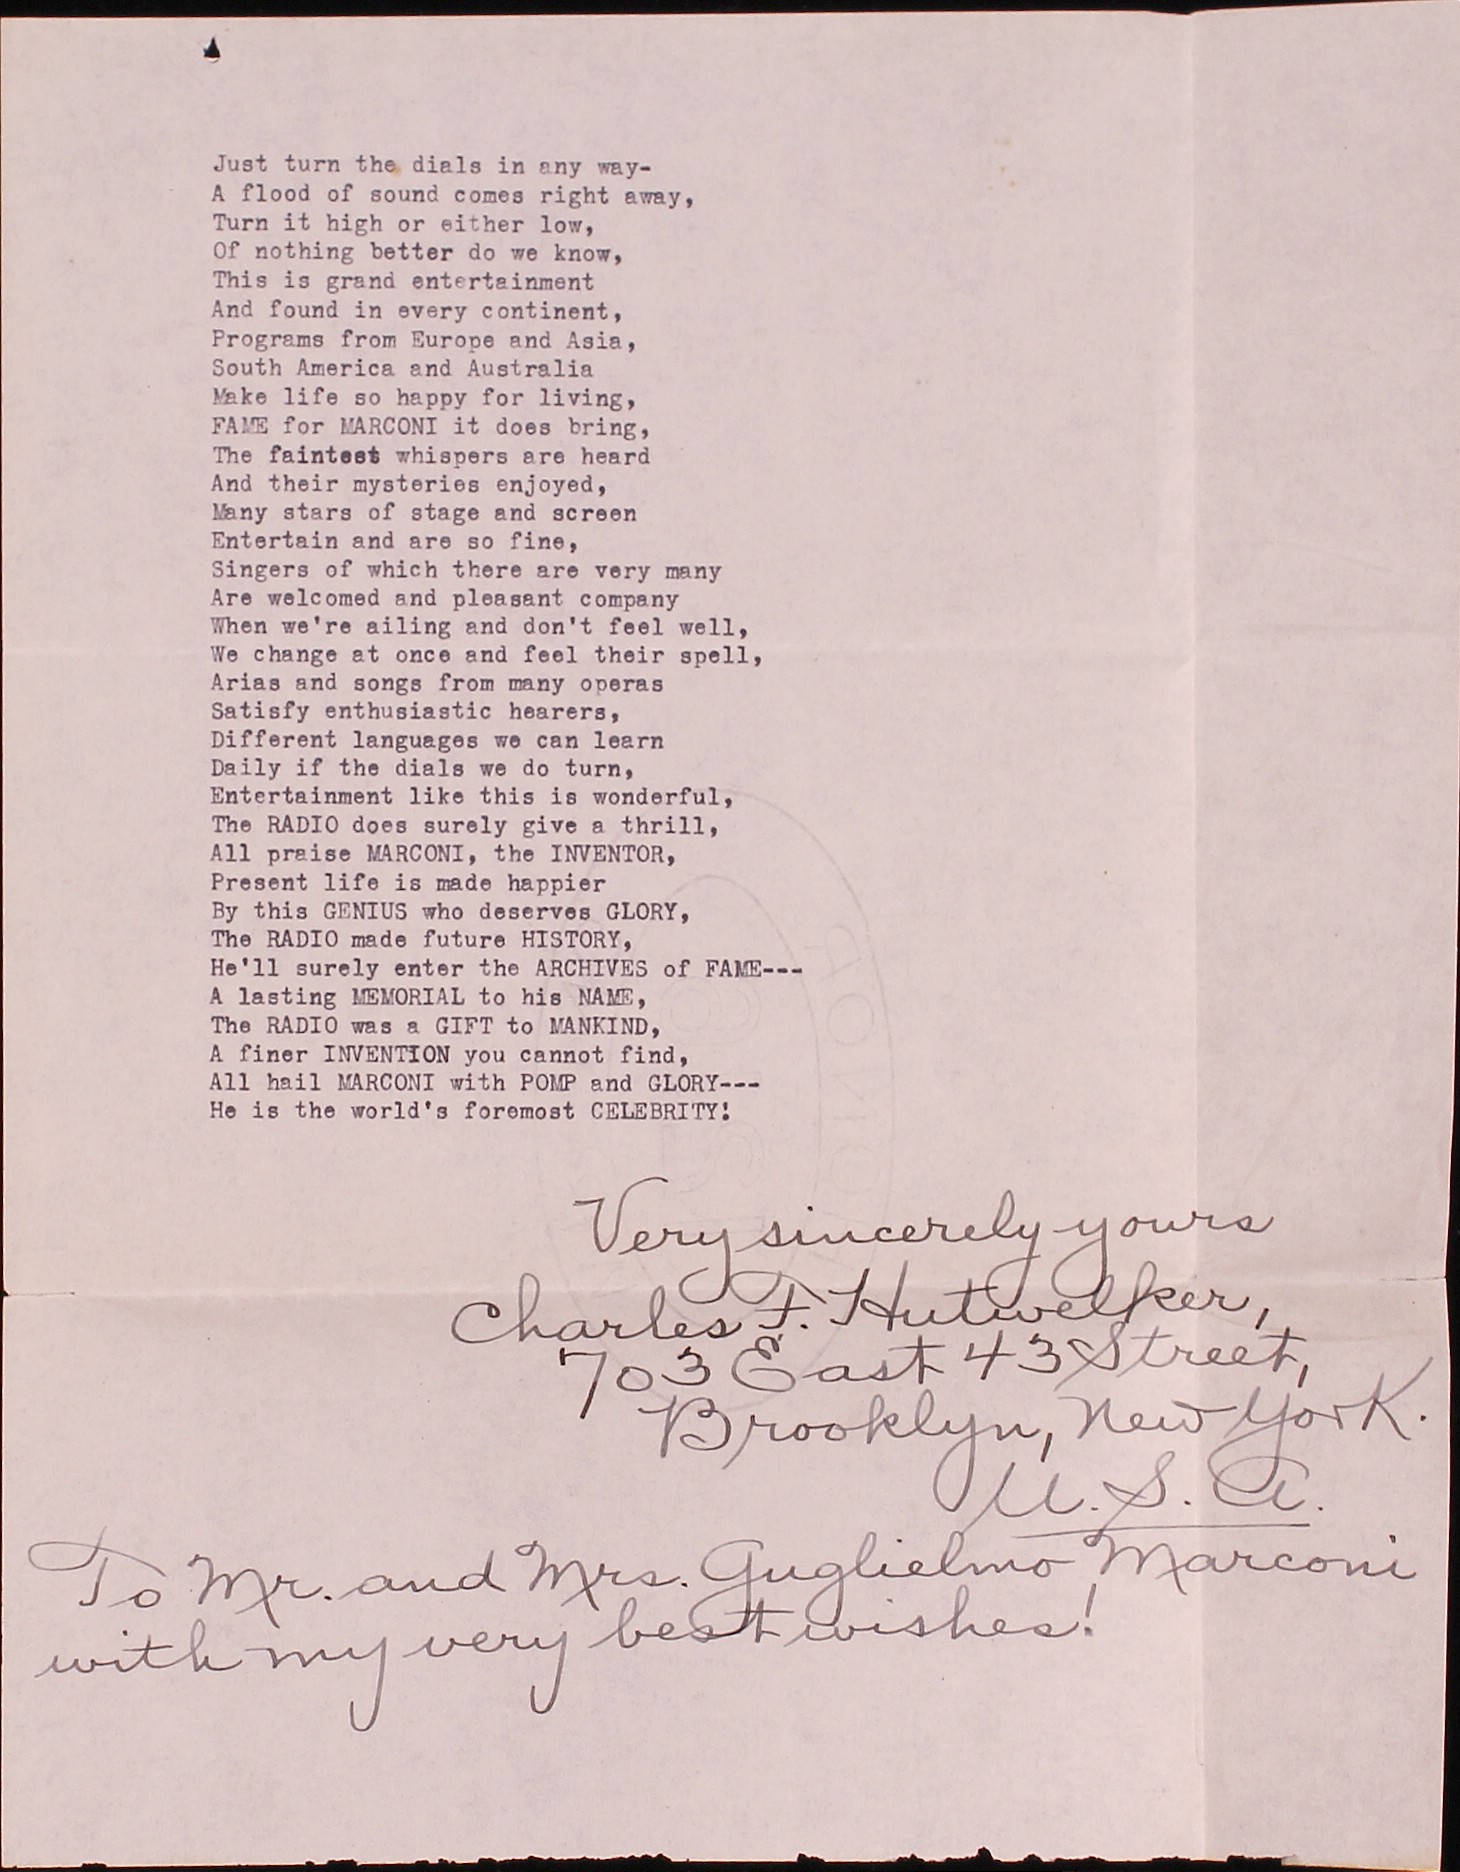 Just turn the dials in any way-
A flood of sound comes right away,
Turn it high or either low,
Of nothing better do we know,
This is grand entertainment
And found in every continent,
Programs from Europe and Asia,
South America and Australia
Make life so happy for living,
FAME for MARCONI it does bring,
The faintest whispers are heard
And their mysteries enjoyed,
Many stars of stage and screen
Entertain and are so fine,
Singers of which there are very many
Are welcomed and pleasant company
When we're ailing and don't feel well,
We change at once and feel their spell,
Arias and songs from many operas
Satisfy enthusiastic hearers,
Different languages we can learn
Daily if the dials we do turn,
Entertainment like this is wonderful,
The RADIO does surely give a thrill,
All praise MARCONI, the INVENTOR,
Present life is made happier
By this GENIUS who deserves GLORY,
The RADIO made future HISTORY,
He'll surely enter the ARCHIVES of FAME---
A lasting MEMORIAL to his NAME,
The RADIO was a GIFT to MANKIND,
A finer INVENTION you cannot find,
All hail MARCONI with POMP and GLORY---
He is the world's foremost CELEBRITY!
Very sincerely yours
Charles F. Hutwelker,
703 East 43 Street,
Brooklyn, New York.
U.S.A.
To Mr. and Mrs. Guglielmo Marconi
with my very best wishes!